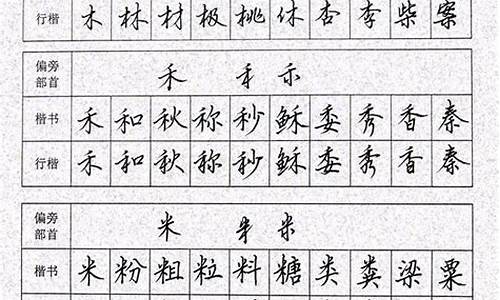 行楷 木 林 材 极 桃 休 杏 李 柴 案
偏旁
部首 禾 禾 禾
楷书 禾 和 秋 称 秒 稣 委 秀 香 秦
行楷 禾 和 秋 称 秒 稣 委 秀 香 秦
偏旁
部首 米 米 米
楷书 米 粉 粗 粒 料 糖 类 粪 粱 粟